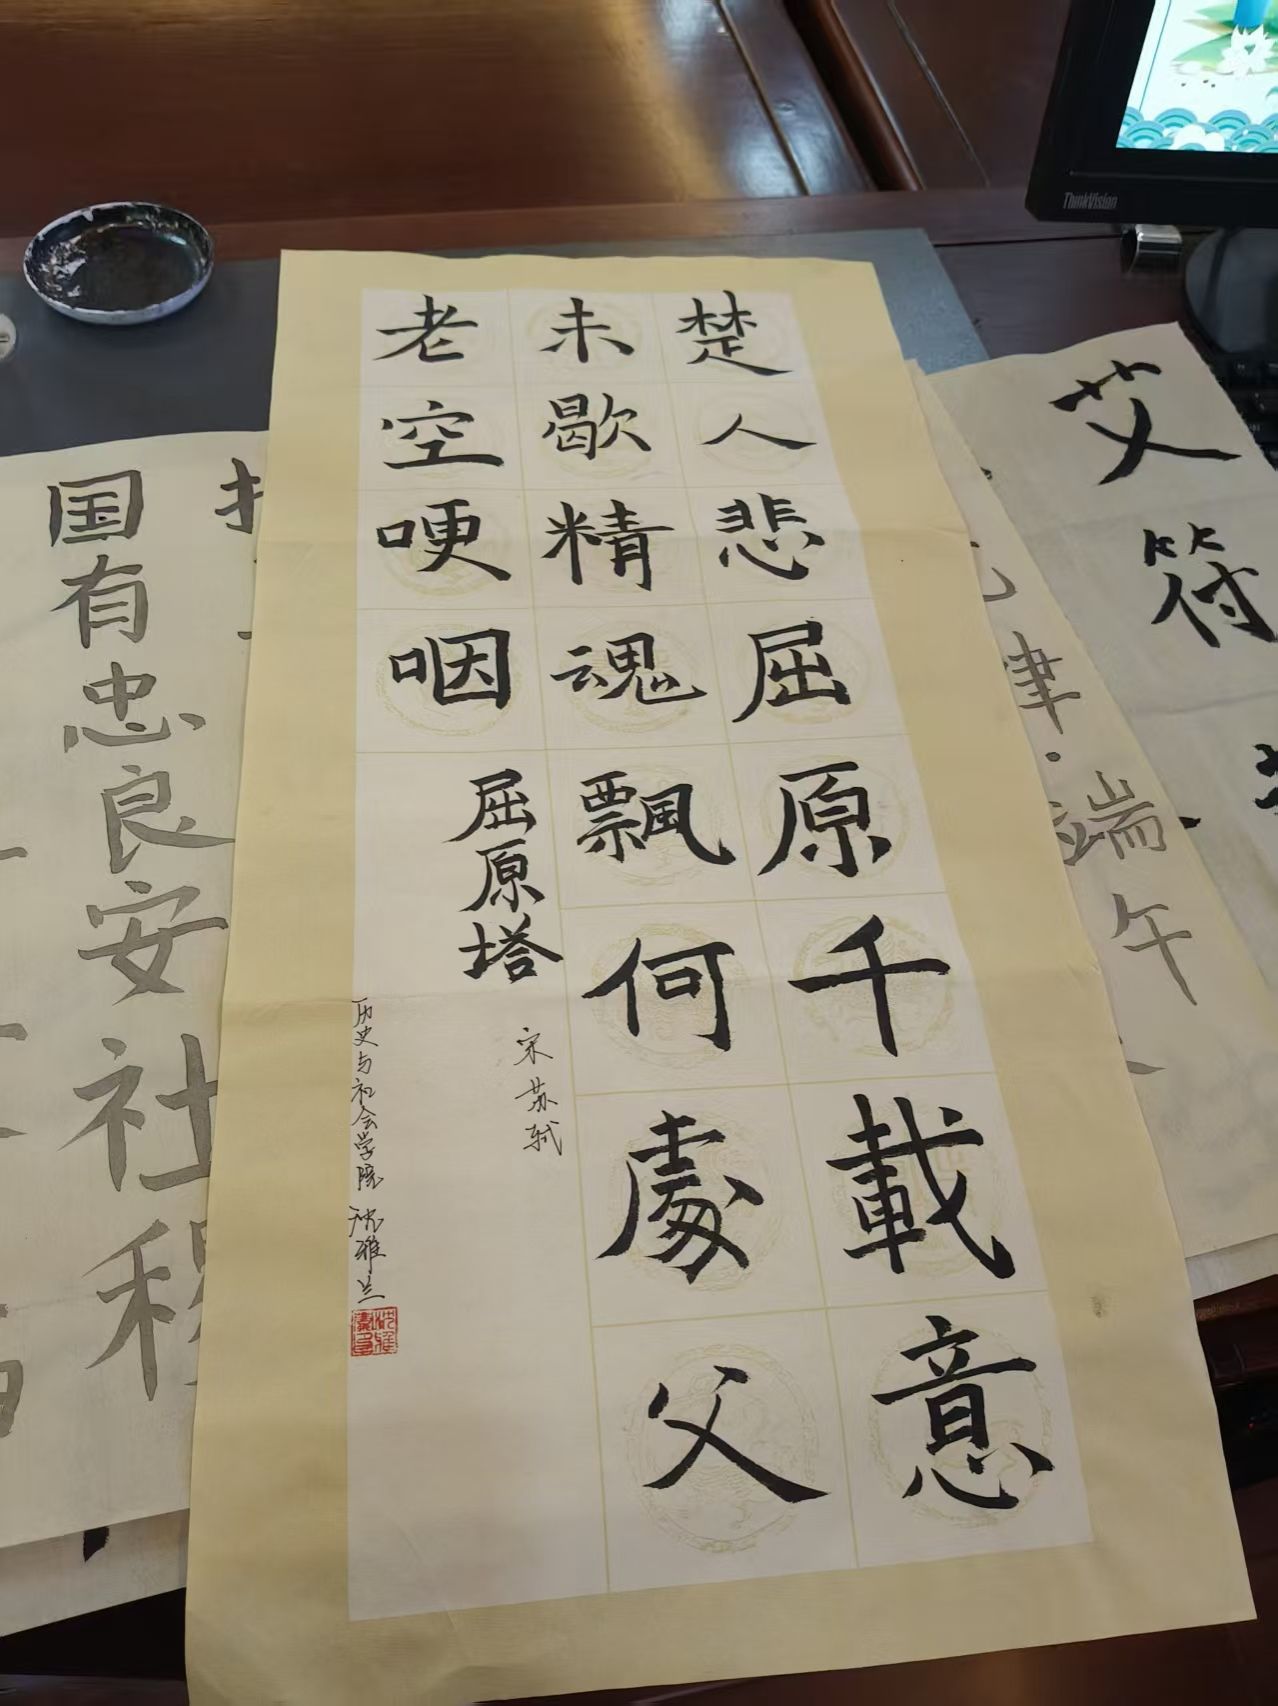 楚人悲屈原千載意
未歇精魂飄何處父
老空哽咽
屈原塔
宋 苏轼
历史与社会学院 沈雅兰
国有忠良安社稷
艾符
津·端午
ThinkVision